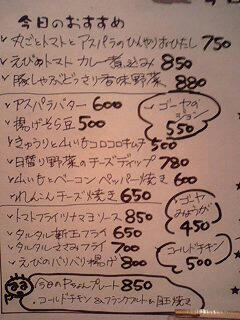 今日のおすすめ
丸ごとトマトとアスパラのひんやりおひたし 750
えびのトマトカレー煮込み 850
豚しゃぶどっさり香味野菜 880
アスパラバター 600
揚げそら豆 500
きゅうりと 500
日替り野菜のチーズディップ 780
とベーコンペッパー焼き 600
れんこんチーズ焼き 650
ゴーヤの
550
トマトフライツナマヨソース 850
タルタル新玉フライ 650
タルタルささみフライ 700
えびのパリパリ揚げ 800
ゴーヤ
みょうが
450
コールドチキン
500
今日のキャんプレート 850
コールドチキン&フランクフルト&目玉焼き